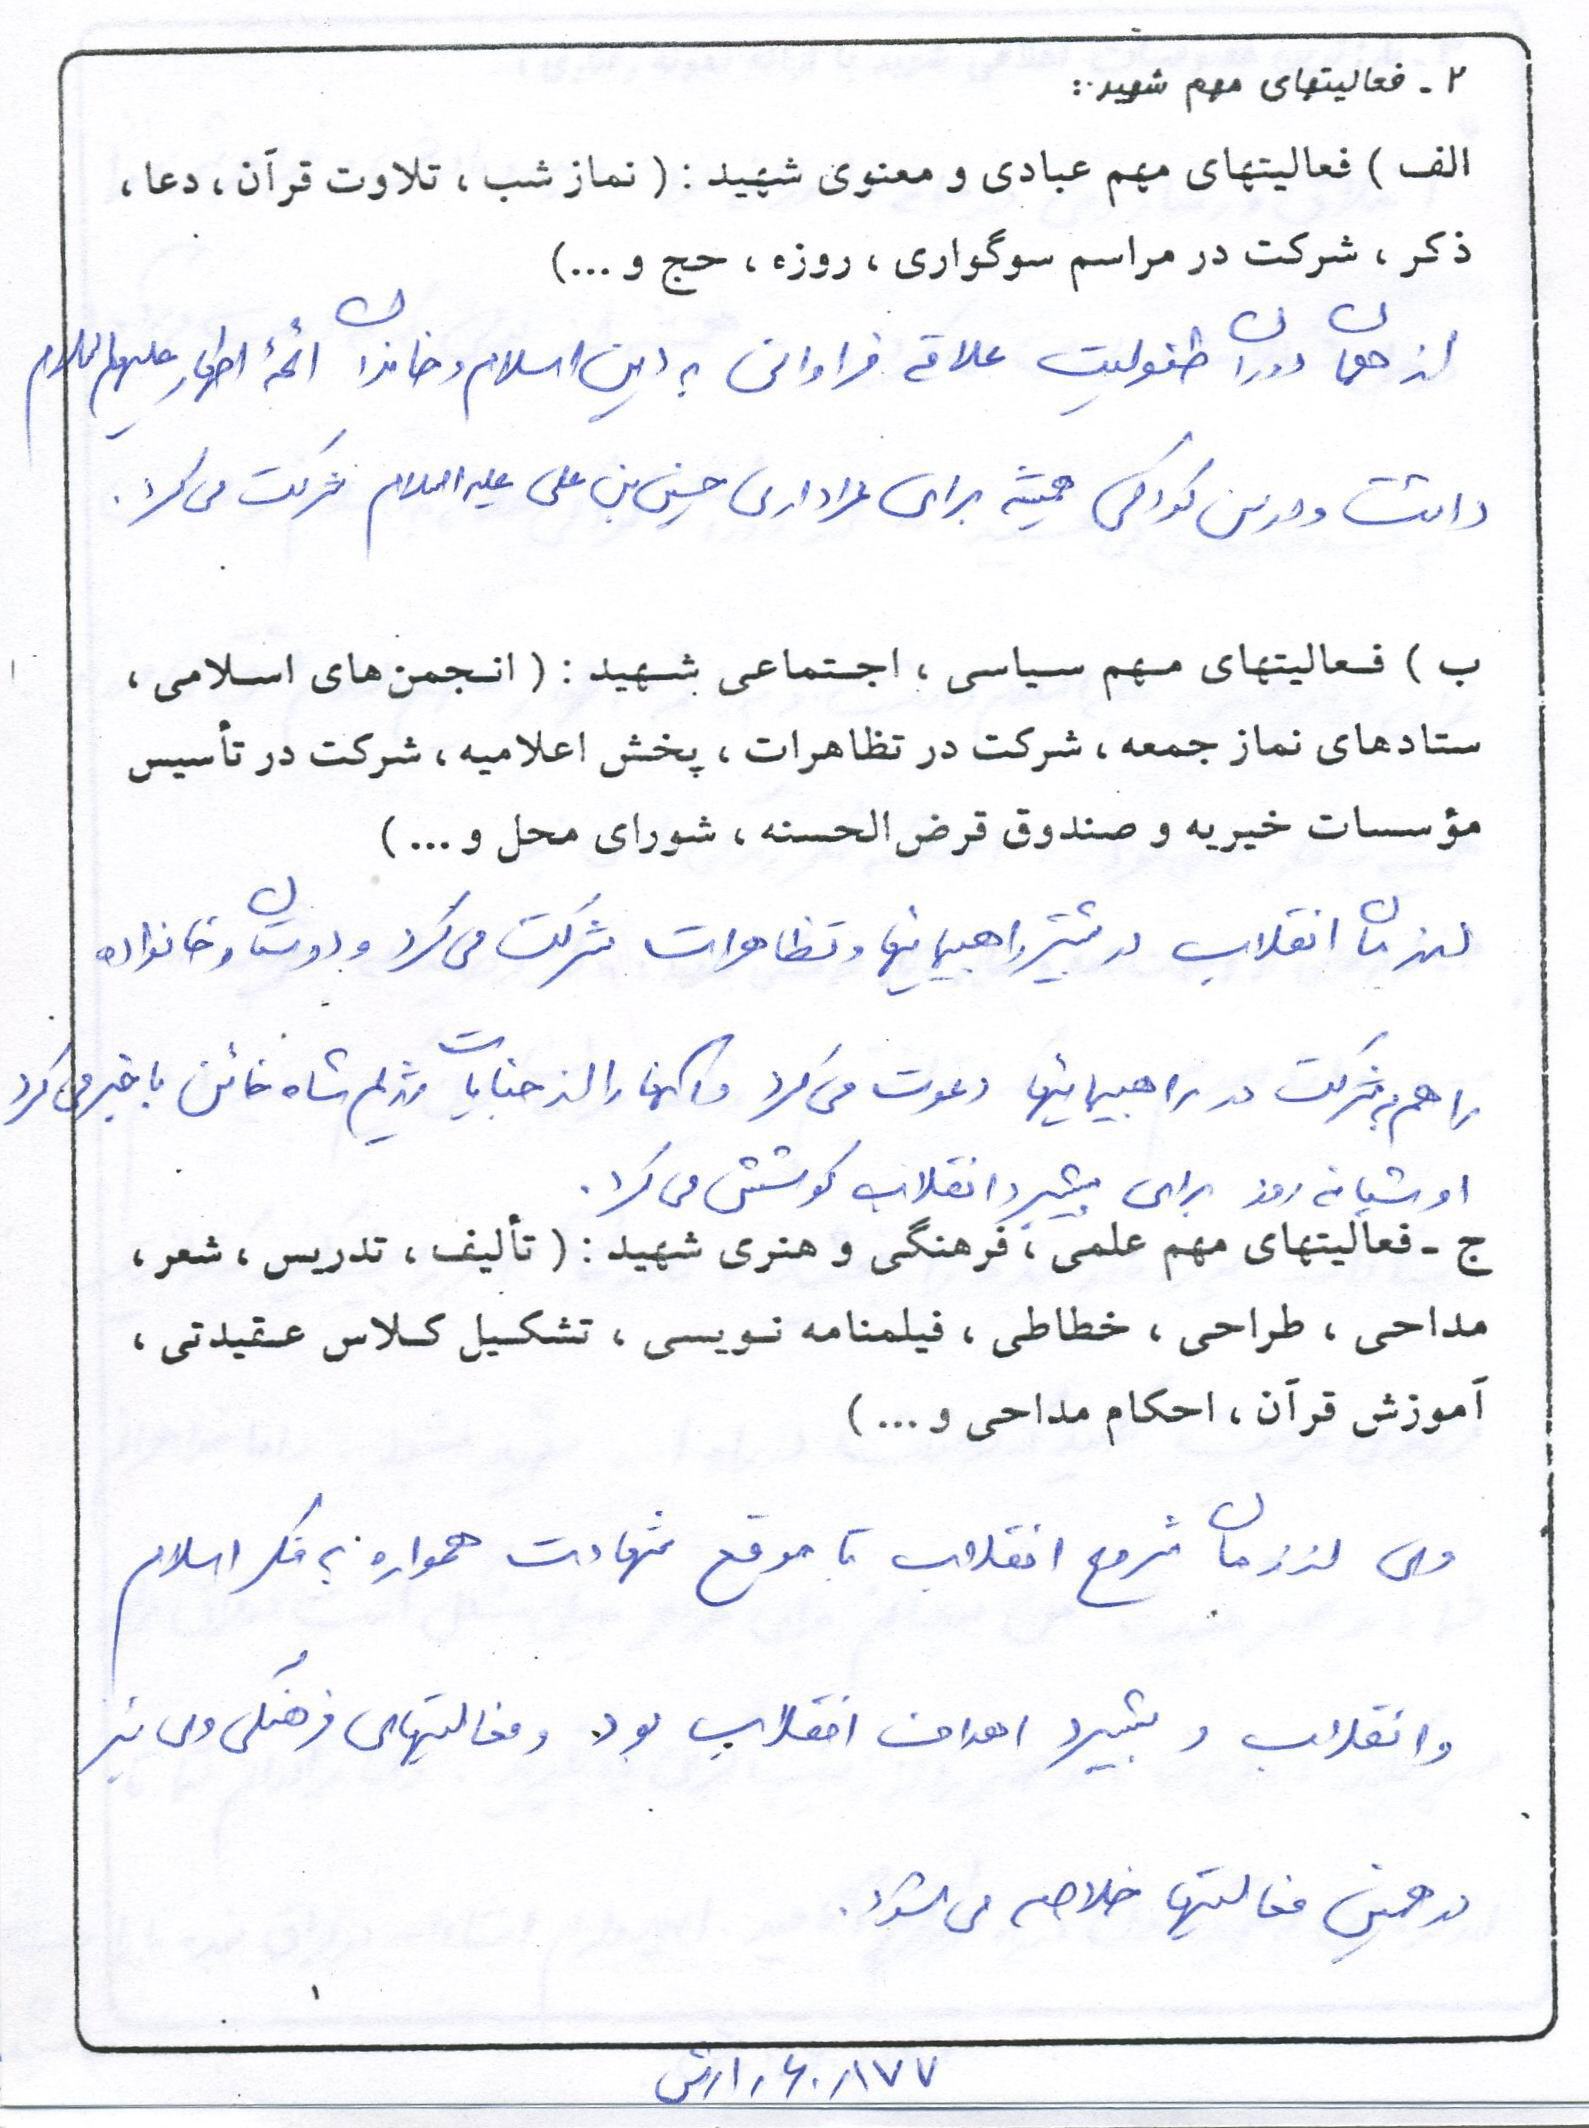 ۲ - فعالیتهای مهم شهید :
الف ) فعالیتهای مهم عبادی و معنوی شهید : ( نماز شب ، تلاوت قرآن ، دعا ،
ذکر ، شرکت در مراسم سوگواری ، روزه ، حج و ...)
از همان دوران طفولیت علاقه فراوانی به دین اسلام و خاندان ائمهٔ اطهار علیهم السلام
داشت و از سن کودکی همیشه برای عزاداری حسین بن علی علیه السلام شرکت می کرد .
ب ) فعالیتهای مهم سیاسی ، اجتماعی شهید : ( انجمن های اسلامی ،
ستادهای نماز جمعه ، شرکت در تظاهرات ، پخش اعلامیه ، شرکت در تأسیس
مؤسسات خیریه و صندوق قرض الحسنه ، شورای محل و ... )
از زمان انقلاب در بیشتر راهپیمائیها و تظاهرات شرکت می کرد و دوستان و خانواده
را هم به شرکت در راهپیمائیها دعوت می کرد و آنها را از جنایات رژیم شاه خائن با خبر می کرد
او شبانه روز برای پیشبرد انقلاب کوشش می کرد .
ج - فعالیتهای مهم علمی ، فرهنگی و هنری شهید : ( تألیف ، تدریس ، شعر ،
مداحی ، طراحی ، خطاطی ، فیلمنامه نویسی ، تشکیل کلاس عقیدتی ،
آموزش قرآن ، احکام مداحی و ... )
وی از زمان شروع انقلاب تا موقع شهادت همواره به فکر اسلام
و انقلاب و پیشبرد اهداف انقلاب بود و فعالیتهای فرهنگی وی نیز
در همین فعالیتها خلاصه می شود .